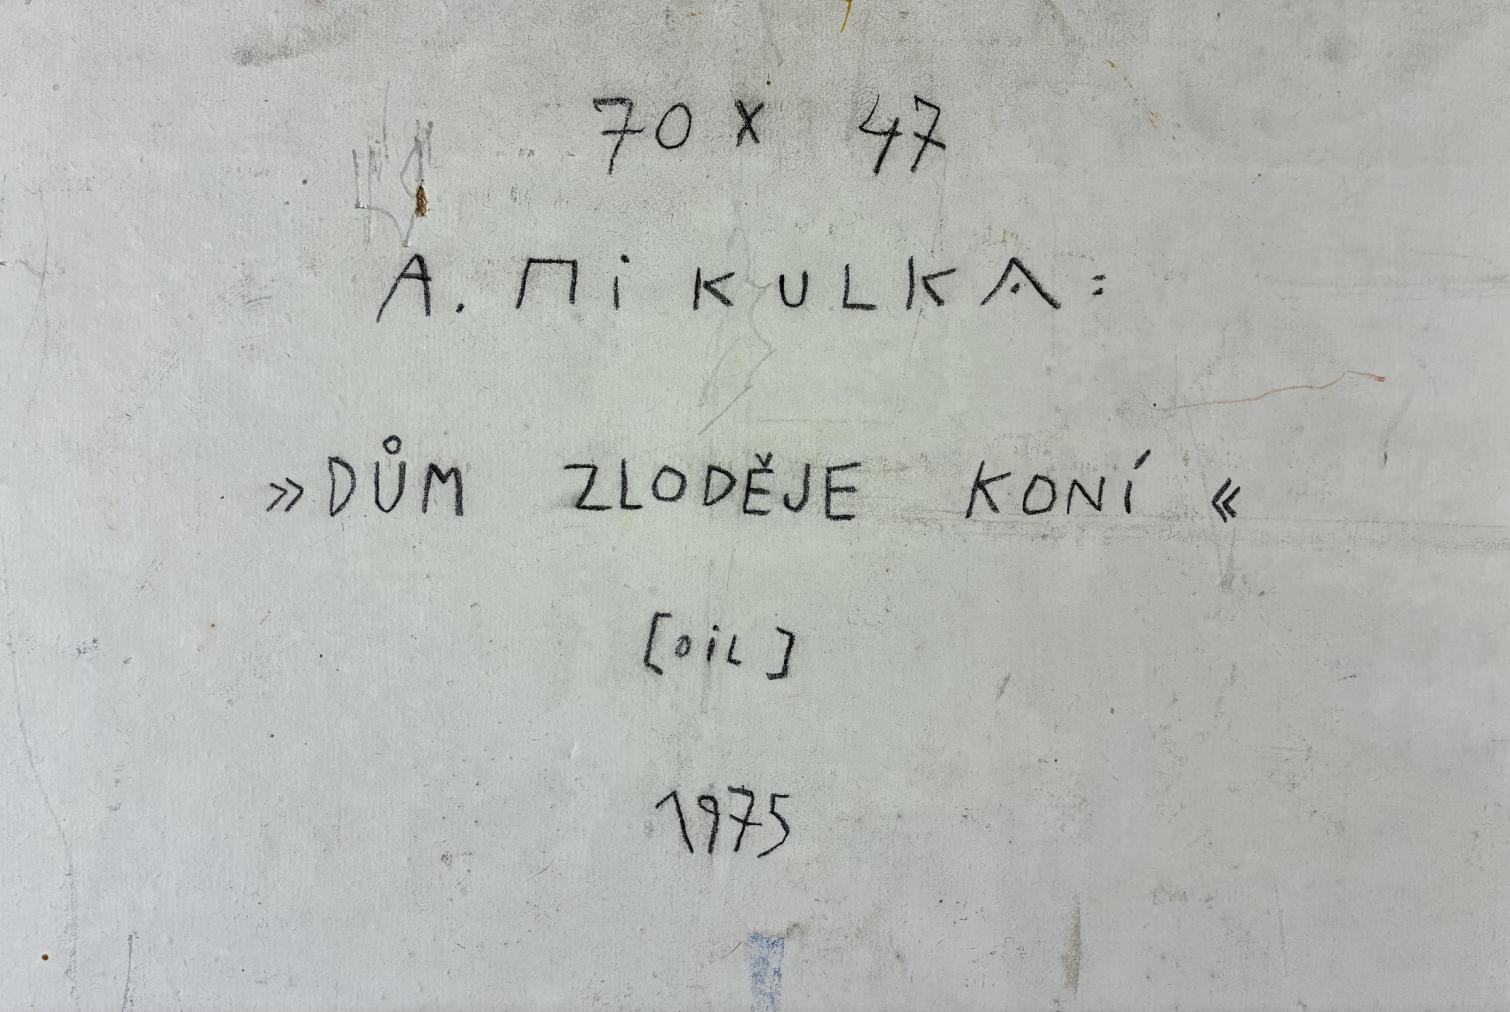 70 x 47
A. MiKULKA:
»DŮM ZLODĚJE KONÍ«
[OiL]
1975